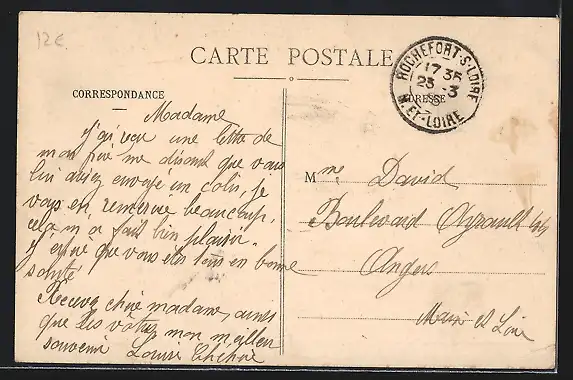 12€
CARTE POSTALE
CORRESPONDANCE
ADRESSE
ROCHEFORT-S-LOIRE
17 35
23 -3
M.-ET-LOIRE
Madame
J'ai reçu une lettre de
mon père me disant que vous
lui aviez envoyé un colis, je
vous en remercie beaucoup,
cela m'a fait bien plaisir.
J'espère que vous êtes tous en bonne
santé
Recevez chère madame, ainsi
que les vôtres mon meilleur
souvenir Louise
Mme David
Boulevard Ayrault
Angers
Maine et Loire